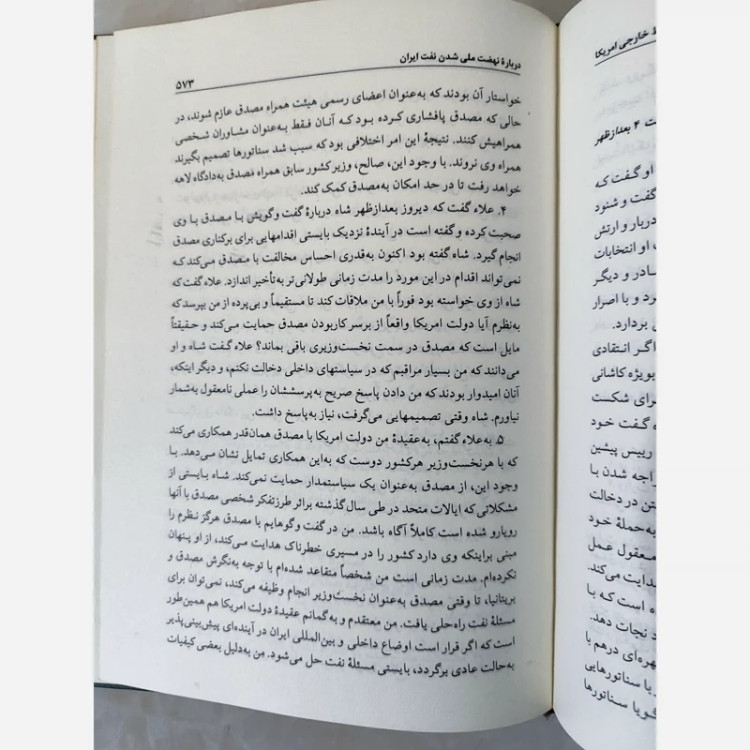 دربارهٔ نهضت ملی شدن نفت ایران
۵۷۳
خواستار آن بودند که به‌عنوان اعضای رسمی هیئت همراه مصدق عازم شوند، در
حالی که مصدق پافشاری کرده بود که آنان فقط به‌عنوان مشاوران شخصی
همراهیش کنند. نتیجهٔ این امر اختلافی بود که سبب شد سناتورها تصمیم بگیرند
همراه وی نروند. با وجود این، صالح، وزیر کشور سابق همراه مصدق به‌دادگاه لاهه
خواهد رفت تا در حد امکان به‌مصدق کمک کند.
۴. علاء گفت که دیروز بعدازظهر شاه دربارهٔ گفت وگویش با مصدق با وی
صحبت کرده و گفته است در آیندهٔ نزدیک بایستی اقدامهایی برای برکناری مصدق
انجام گیرد. شاه گفته بود اکنون به‌قدری احساس مخالفت با مصدق می‌کند که
نمی‌تواند اقدام در این مورد را مدت زمانی طولانی‌تر به‌تأخیر اندازد. علاء گفت که
شاه از وی خواسته بود فوراً با من ملاقات کند تا مستقیماً و بی‌پرده از من بپرسد که
به‌نظرم آیا دولت امریکا واقعاً از برسر کاربودن مصدق حمایت می‌کند و حقیقتاً
مایل است که مصدق در سمت نخست‌وزیری باقی بماند؟ علاء گفت شاه و او
می‌دانند که من بسیار مراقبم که در سیاستهای داخلی دخالت نکنم، و دیگر اینکه،
آنان امیدوار بودند که من دادن پاسخ صریح به‌پرسششان را عملی نامعقول به‌شمار
نیاورم. شاه وقتی تصمیمهایی می‌گرفت، نیاز به‌پاسخ داشت.
۵. به‌علاء گفتم، به‌عقیدهٔ من دولت امریکا با مصدق همان‌قدر همکاری می‌کند
که با هرنخست‌وزیر هرکشور دوست که به‌این همکاری تمایل نشان می‌دهد. با
وجود این، از مصدق به‌عنوان یک سیاستمدار حمایت نمی‌کند. شاه بایستی از
مشکلاتی که ایالات متحد در طی سال‌گذشته براثر طرزتفکر شخصی مصدق با آنها
رویارو شده است کاملاً آگاه باشد. من در گفت وگوهایم با مصدق هرگز نظرم را
مبنی براینکه وی دارد کشور را در مسیری خطرناک هدایت می‌کند، از او پنهان
نکرده‌ام. مدت زمانی است من شخصاً متقاعد شده‌ام با توجه به‌نگرش مصدق و
بریتانیا، تا وقتی مصدق به‌عنوان نخست‌وزیر انجام وظیفه می‌کند، نمی‌توان برای
مسئلهٔ نفت راه‌حلی یافت. من معتقدم و به‌گمانم عقیدهٔ دولت امریکا هم همین‌طور
است که اگر قرار است اوضاع داخلی و بین‌المللی ایران در آینده‌ای پیش‌بینی‌پذیر
به‌حالت عادی برگردد، بایستی مسئلهٔ نفت حل می‌شود. من به‌دلیل بعضی کیفیات
خارجی امریکا
۴ بعدازظهر
او گفت که
گفت و شنود
دربار و ارتش
او انتخابات
سادر و دیگر
رد و با اصرار
بردارد.
اگر انتقادی
بویژه کاشانی
برای شکست
گفت خود
رییس پیشین
اجه شدن با
تن در دخالت
به‌حملهٔ خود
معقول عمل
هدایت می‌کند.
ده است که با
نجات دهد.
هره‌ای درهم با
یا سناتورهایی
گویا سناتورها